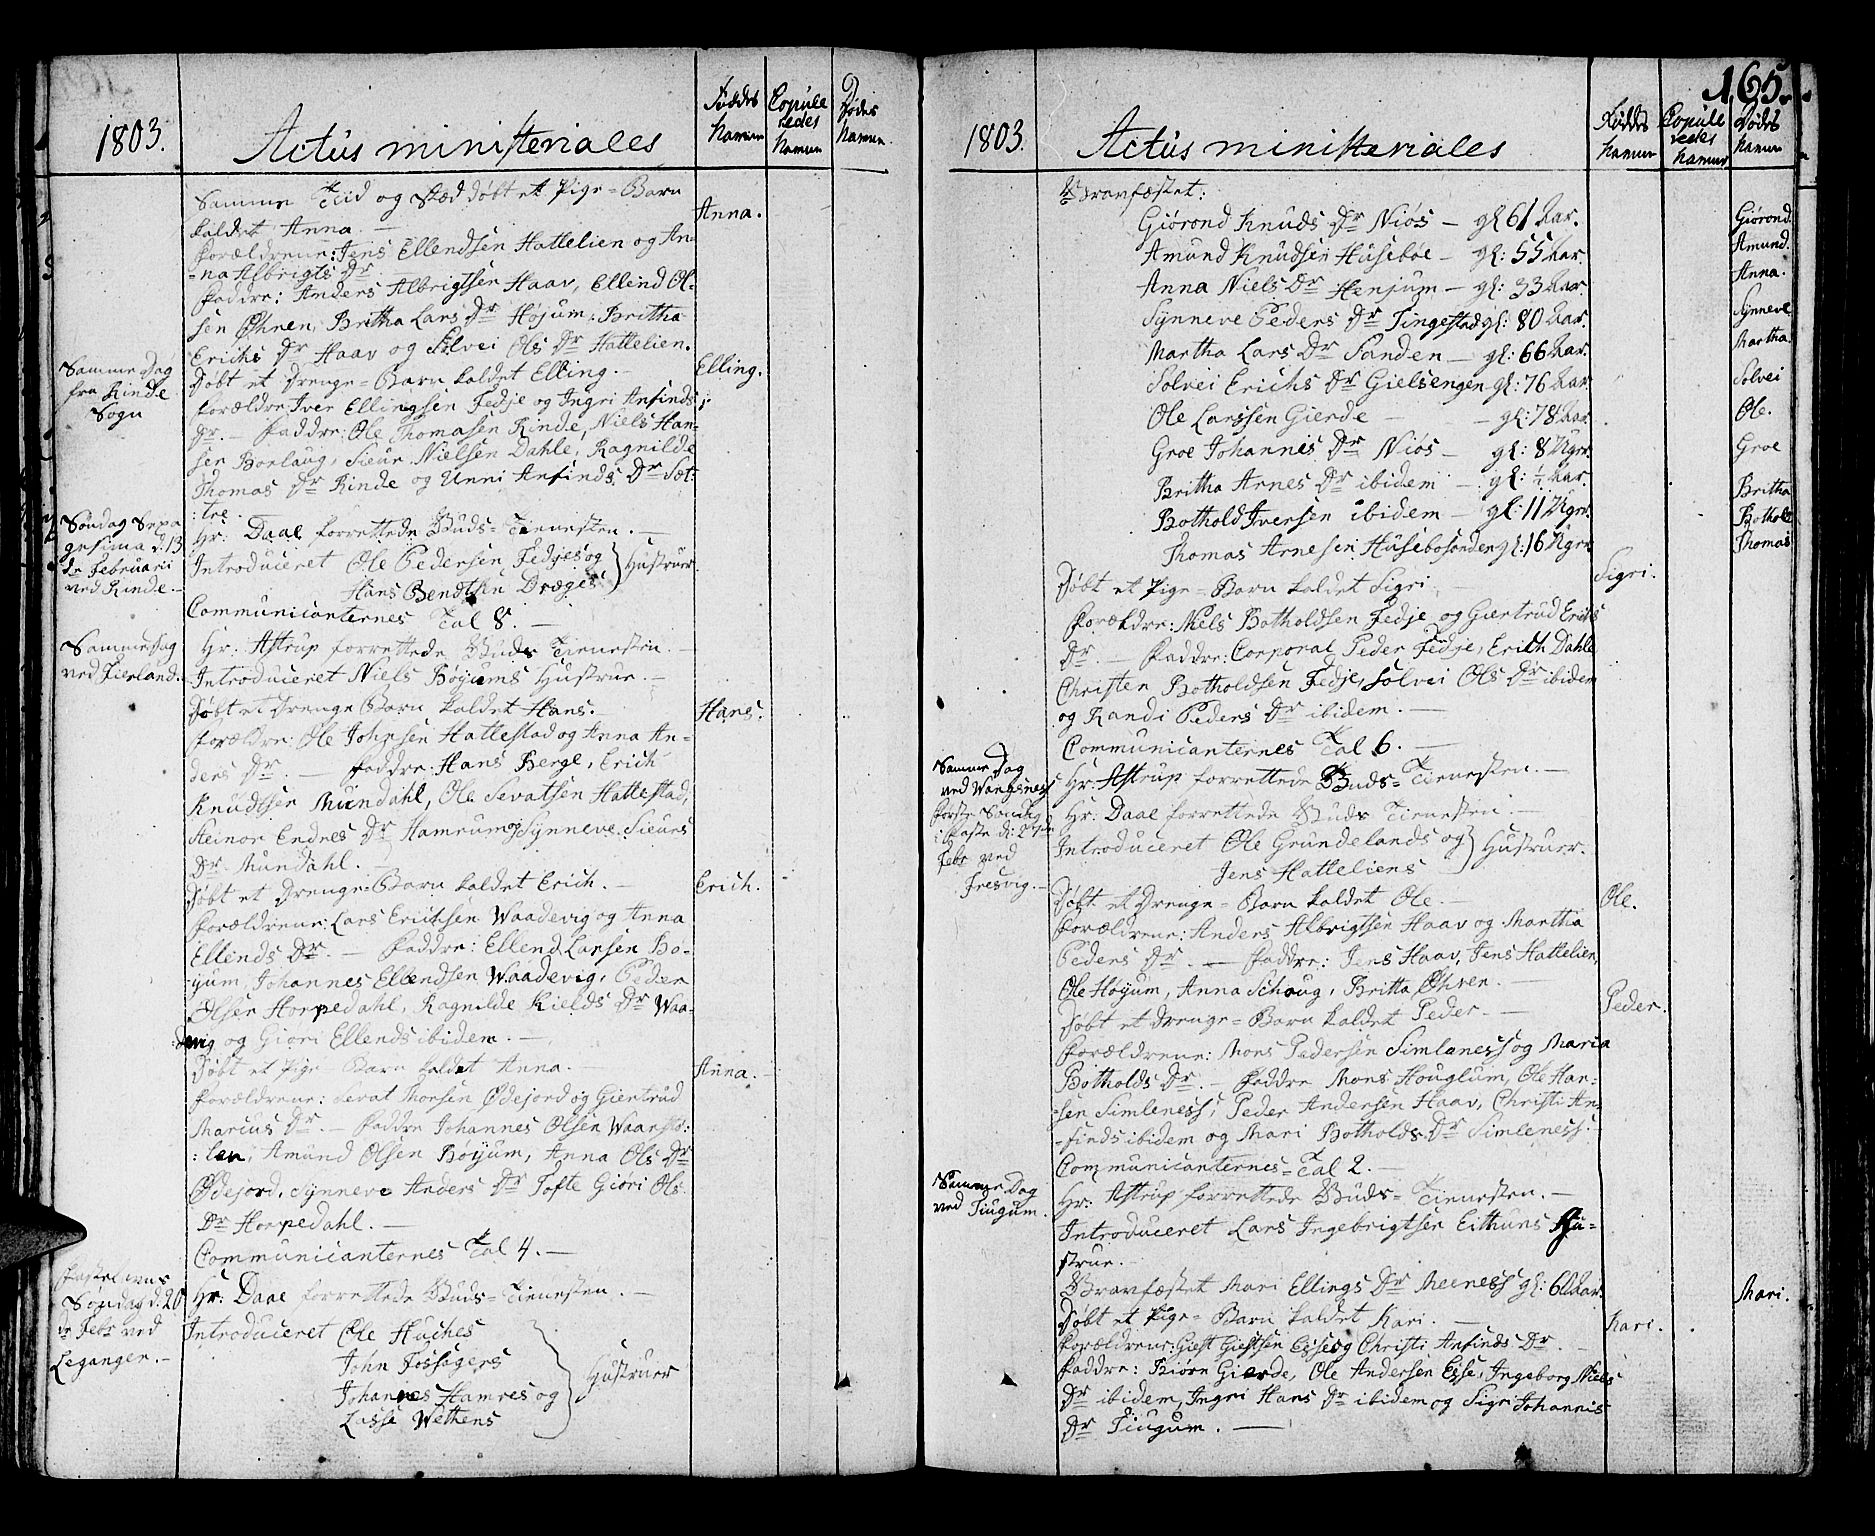 1803.
Actus ministeriales
Føddes Namne
Copuleredes Namne
Dødes Namne
Samme Tiid og Stæd døbt et Pige-Barn
kaldet Anna. —
Anna.
Forældrene: Jens Ellendsen Hattelien og An-
-na Albrigts Dr
Faddre: Anders Albrigtsen Haav, Ellend Ol-
sen Øhren, Britha Lars Dr Højum, Britha
Erichs Dr Haav og Solvei Ols Dr Hattelien.
Samme Dag
fra Rinde
Sogn
Døbt et Drenge-Barn kaldet Elling. —
Elling.
Forældre Iver Ellingsen Fedje og Ingri Anfinds
Dr. — Faddre: Ole Thomasen Rinde, Niels Han-
sen Borlaug, Sieur Nielsen Dahle, Ragnilde
Thomas Dr Rinde og Unni Anfinds Dr Sæt-
:tre. —
Søndag Sexa
gesima d: 13
de Februarii
ved Rinde. —
Hr: Daae forrettede Guds-Tienesten. —
Introduceret Ole Pedersen Fedjes og
Hans Bendtsen Dræges
Hustruer
Communicanternes Tal 8. —
Samme Dag
ved Fierland.
Hr: Astrup forrettede Guds Tienesten. —
Introduceret Niels Bøyums Hustrue. —
Døbt et Drenge Barn kaldet Hans. —
Hans.
Forældre: Ole Johnsen Hattestad og Anna An-
ders Dr. — Faddre: Hans Berge, Erich
Knudtsen Mundahl, Ole Sevatsen Hattestad,
Steinor Endres Dr Hamrum og Synneve Sieurs
Dr. Mundahl.
Døbt et Drenge-Barn kaldet Erich. —
Erich.
Forældrene: Lars Erichsen Waadevig og Anna
Ellends Dr. — Faddre: Ellend Larsen Bø-
:yum, Johannes Ellendsen Waadevig, Peder
Olsen Horpedahl, Ragnilde Kields Dr Waa-
devig og Giøri Ellends ibidem. —
Døbt et Pige-Barn kaldet Anna. —
Anna.
Forældrene: Sevat Thorsen Ødejord og Giertrud
Marcus Dr. — Faddre Johannes Olsen Waarstø-
:len, Amund Olsen Bøyum, Anna Ols Dr
Ødejord, Synneve Anders Dr Tofte Giøri Ols
Dr Horpedahl. —
Communicanternes Tal 4. —
Fastelavns
Søndag d: 20
de Febr ved
Leganger. —
Hr: Daae forrettede Guds-Tienesten. —
Introduceret Ole Huches
John Fossøgers
Johannes Hamres og
Lasse Wethens
Hustruer
165.
1803.
Actus ministeriales
Føddes Namne
Copuleredes Namne
Dødes Namne
Gravfæstet:
Giørond Knuds Dr Niøs — gl 61 Aar.
Giørond.
Amund Knudsen Husebøe — gl: 55 Aar.
Amund.
Anna Niels Dr Henjum — gl: 33 Aar.
Anna.
Synneve Peders Dr Tingestad gl: 80 Aar.
Synneve
Martha Lars Dr Sanden — gl: 66 Aar.
Martha.
Solvei Erichs Dr Gielsengen gl: 76 Aar
Solvei
Ole Larssen Gierde — gl: 78 Aar.
Ole.
Groe Johannes Dr Niøs — gl: 8 Uger.
Groe
Britha Arnes Dr ibidem — gl: ½ Aar.
Britha
Bothold Iversen ibidem — gl: 11 Uger.
Bothold
Thomas Arnesen Husebøsonden gl: 16 Uger
Thomas
Døbt et Pige-Barn kaldet Sigri. —
Sigri.
Forældre: Niels Botholdsen Fedje og Giertrud Erichs
Dr. — Faddre: Corporal Peder Fedje, Erich Dahle
Christen Botholdsen Fedje, Solvei Ols Dr ibidem
og Randi Peders Dr ibidem. —
Communicanternes Tal 6. —
Samme Dag
ved Wangsness
Hr: Astrup forrettede Guds-Tienesten. —
Første Søndag
i Faste d: 27de
Febr ved
Fresvig. —
Hr: Daae forrettede Guds Tienesten. —
Introduceret Ole Grundelands og
Jens Hatteliens
Hustruer.
Døbt et Drenge-Barn kaldet Ole. —
Ole.
Forældrene: Anders Albrigtsen Haav og Martha
Peders Dr. — Faddre: Jens Haav, Jens Hattelien,
Ole Høyum, Anna Schoug, Britta Øhren. —
Døbt et Drenge-Barn kaldet Peder. —
Peder.
Forældrene: Mons Pedersen Simlaness og Maria
Botholds Dr. — Faddre Mons Houglum, Ole Han-
-sen Simleness, Peder Andersen Haav, Christi An-
-finds ibidem og Mari Botholds Dr Simleness. —
Communicanternes-Tal 2. —
Samme Dag
ved Tiugum.
Hr: Astrup forrettede Guds-Tienesten. —
Introduceret Lars Ingebrigtsen Eithuns Hu-
strue. —
Gravfæstet Mari Ellings Dr Meeness gl: 60 Aar.
Mari.
Døbt et Pige-Barn kaldet Kari. —
Kari.
Forældrene: Giest Giestsen Esse og Christi Anfinds Dr. —
Faddre: Biørn Gierde, Ole Andersen Esse, Ingeborg Niels
Dr ibidem, Ingri Hans Dr ibidem og Sigri Johannis
Dr Tiugum. —